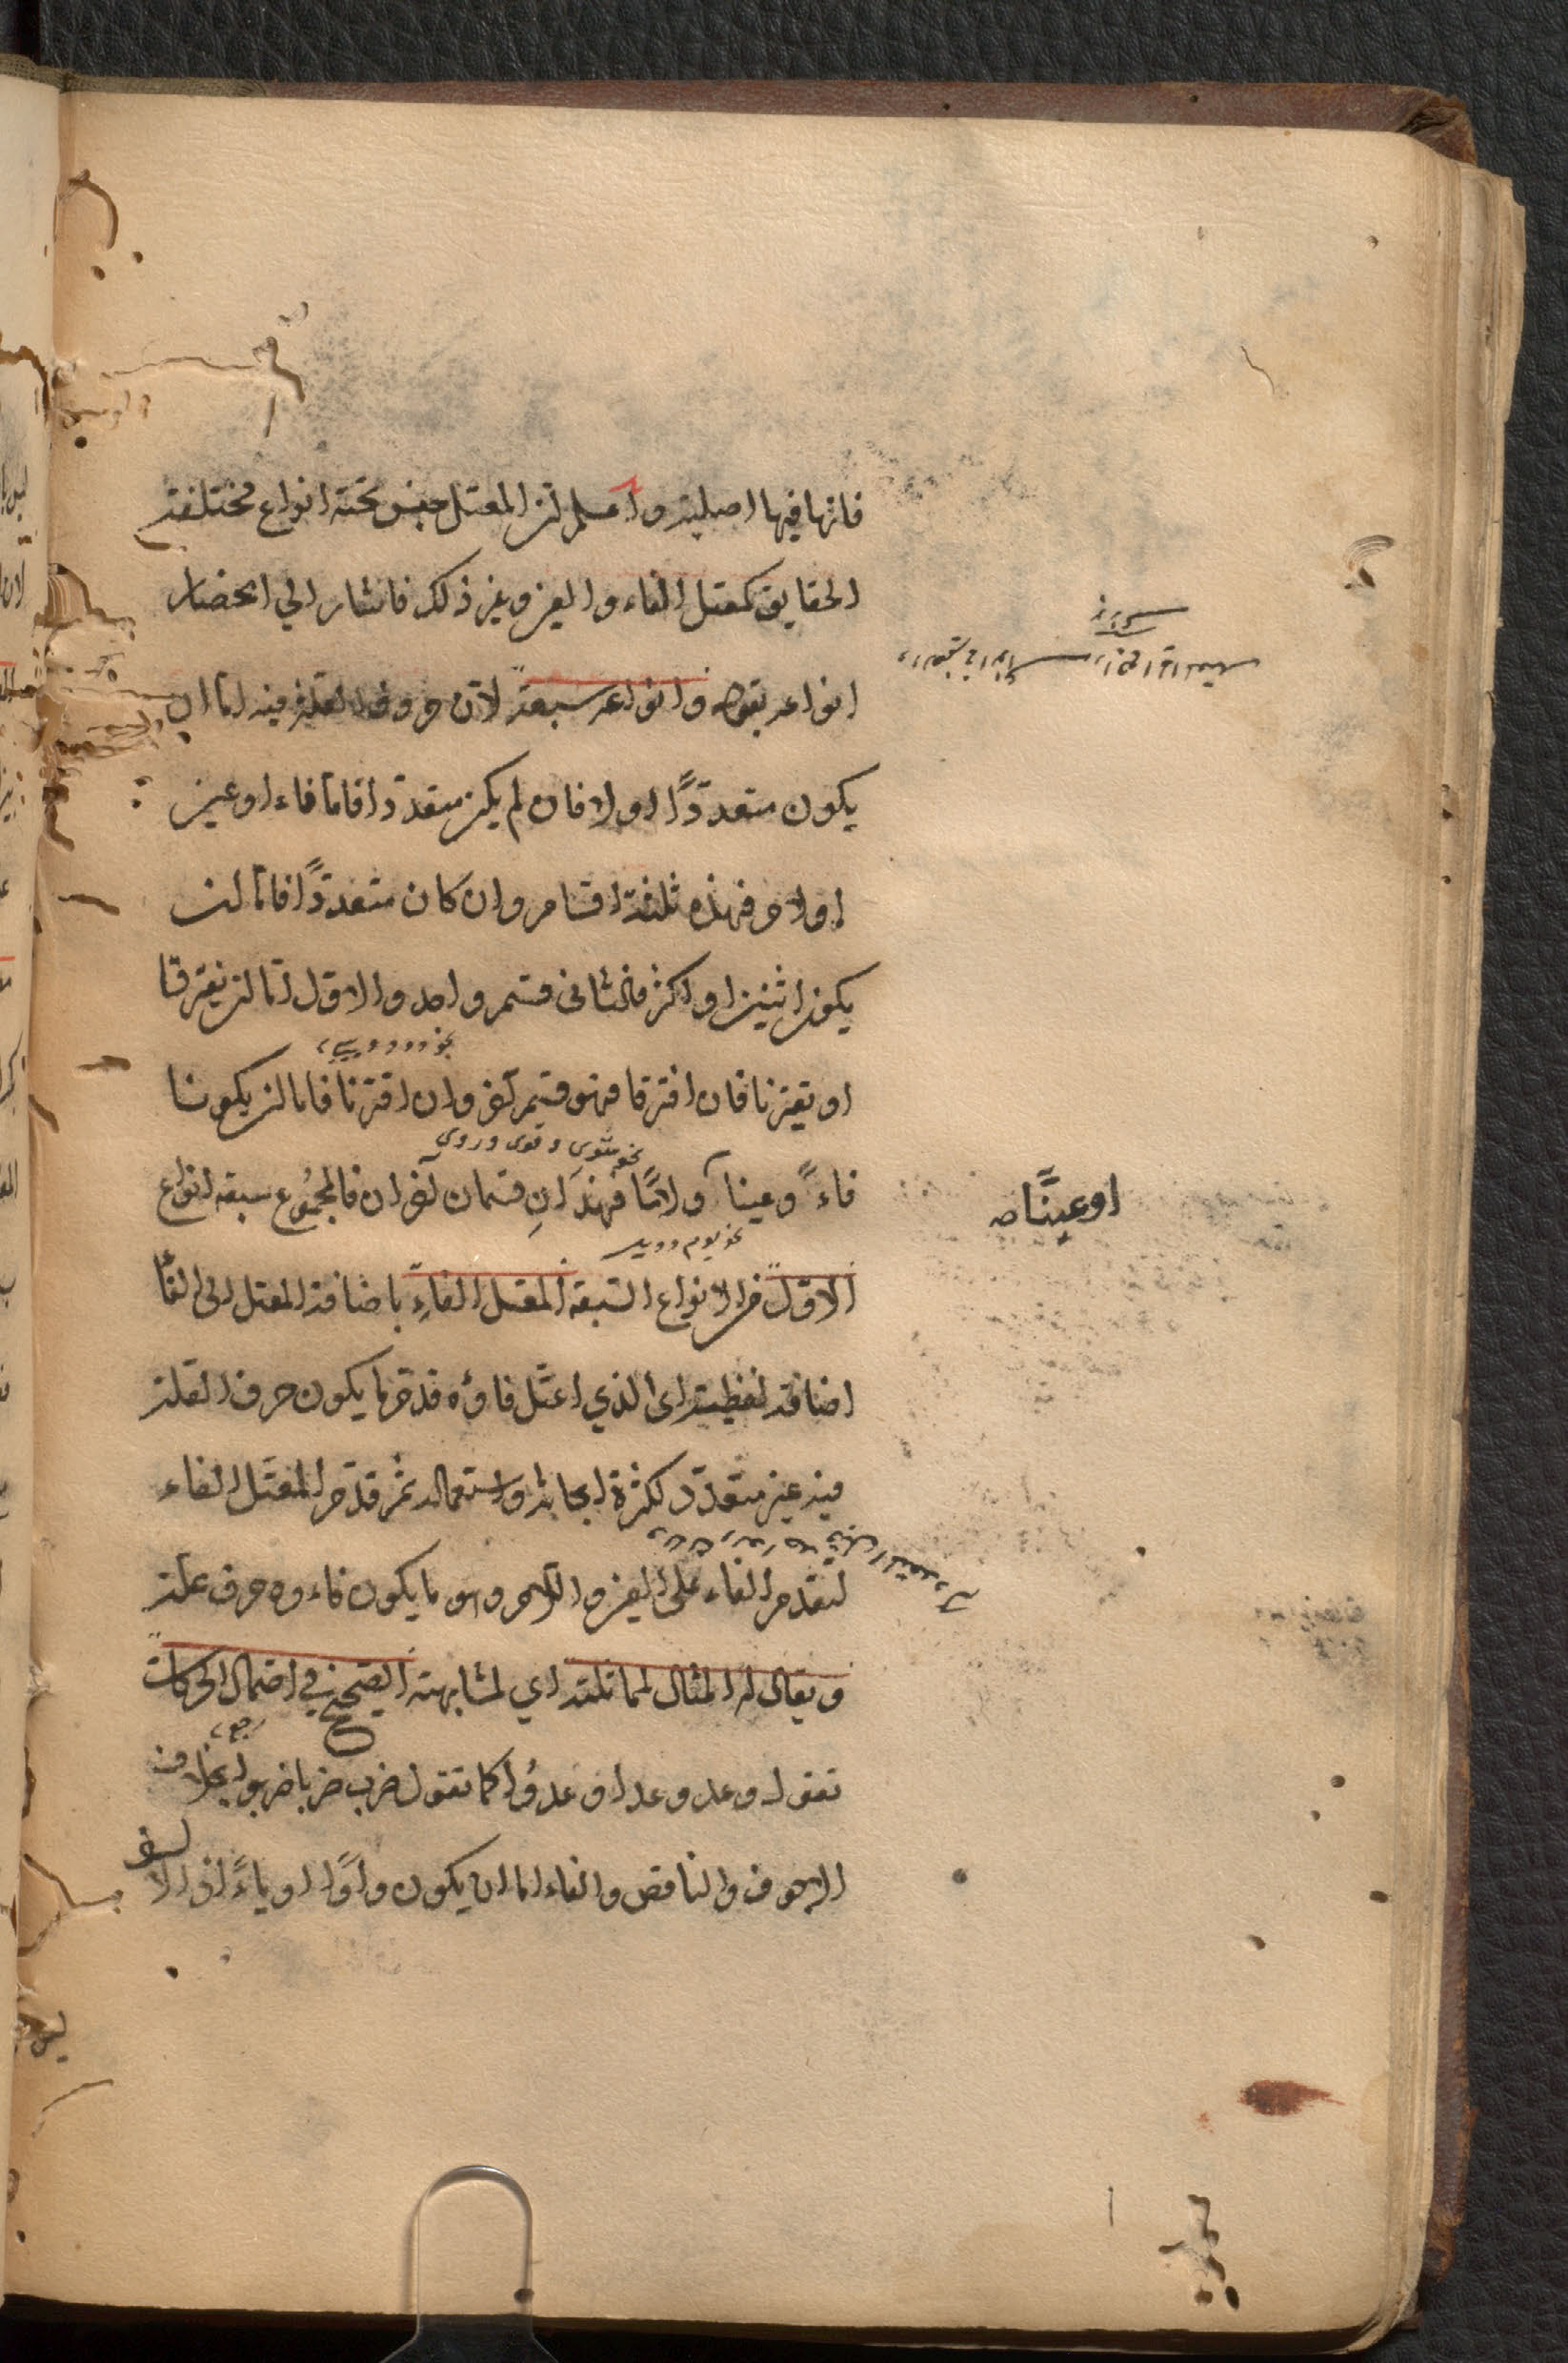 فانها فيها اصلية واعلم ان المعتل جنس تحته انواع مختلفة
الحقايق كمعتل الفاء والعين وغير ذلك فاشار الي انحصار
انواعه بقوله وانواعه سبعة لان حروف العلة فيه اما ان
يكون متعددًا او لا فان لم يكن متعددا فاما فاء او عين
او لام فهذه ثلثة اقسام وان كان متعددًا فاما ان
يكون اثنين او اكثر فالثاني قسم واحد والاول اما ان يفترقا
او يقترنا فان افترقا فهو قسم آخر وان اقترنا فاما ان يكونا
نحو شوى وقوى وروى
فاءً وعينا ولامًا فهذانِ قسمان آخران فالمجموع سبعة انواع
او عينًا صه
نحو يوم وويل
الاول من الانواع السبعة المعتل الفاءِ باضافة المعتل الى الفأ
اضافة لفظية اى الذي اعتل فاؤه قدم ما يكون حرف العلة
فيه غير متعدد لكثرة ابحاثه واستعماله ثم قدم المعتل الفاء
لتقدم الفاء على العين واللام وهو ما يكون فاءوه حرف علة
ويقال له المثال لمماثلته اي لمشابهته الصحيح في احتمال الحركات
تقول وعد وعدا وعدُوا كما تقول ضرب ضربا ضربوا بخلاف
الاجوف والناقص والفاء اما ان يكون واوًا او ياءً اذ الالف